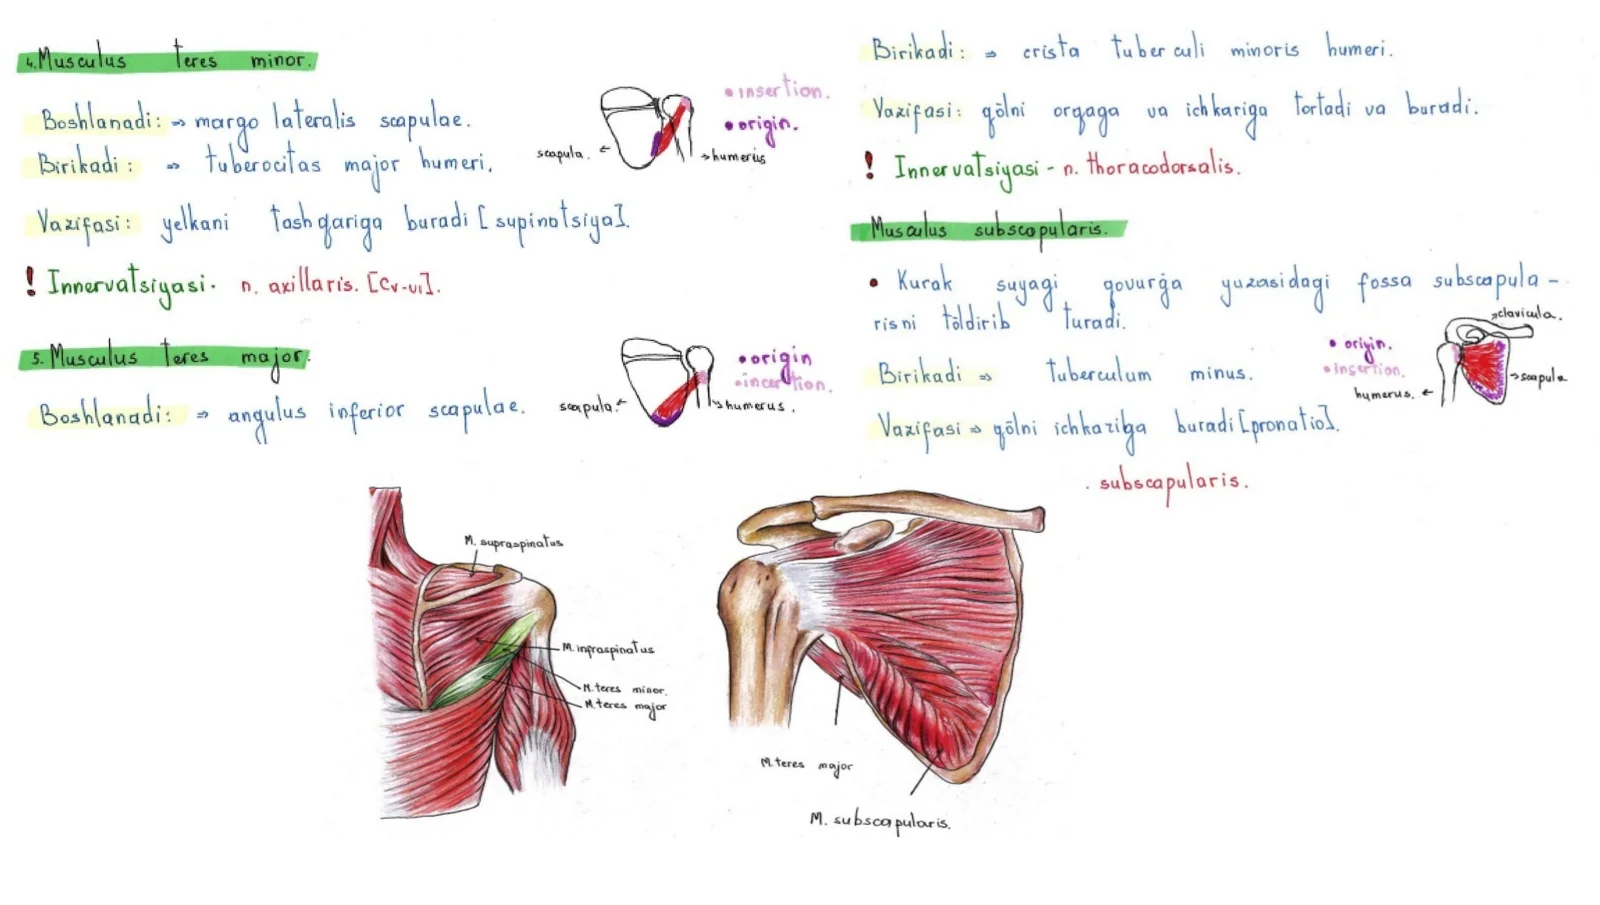 4. Musculus teres minor.
Boshlanadi: ⇒ margo lateralis scapulae.
Birikadi: ⇒ tuberocitas major humeri.
• insertion.
• origin.
scapula.
humerus
Vazifasi: yelkani tashqariga buradi [supinatsiya].
! Innervatsiyasi - n. axillaris. [Cv-vi].
5. Musculus teres major.
Boshlanadi: ⇒ angulus inferior scapulae.
• origin
• incertion.
scapula.
humerus.
Birikadi: ⇒ crista tuberculi minoris humeri.
Vazifasi: qõlni orqaga va ichkariga tortadi va buradi.
! Innervatsiyasi - n. thoracodorsalis.
Musculus subscapularis.
• Kurak suyagi qovurģa yuzasidagi fossa subscapula-
risni tõldirib turadi.
Birikadi ⇒ tuberculum minus.
Vazifasi ⇒ qõlni ichkariga buradi [pronatio].
. subscapularis.
clavicula.
• origin.
• insertion.
scapula
humerus.
M. supraspinatus
M. infraspinatus
M. teres minor.
M. teres major
M. teres major
M. subscapularis.